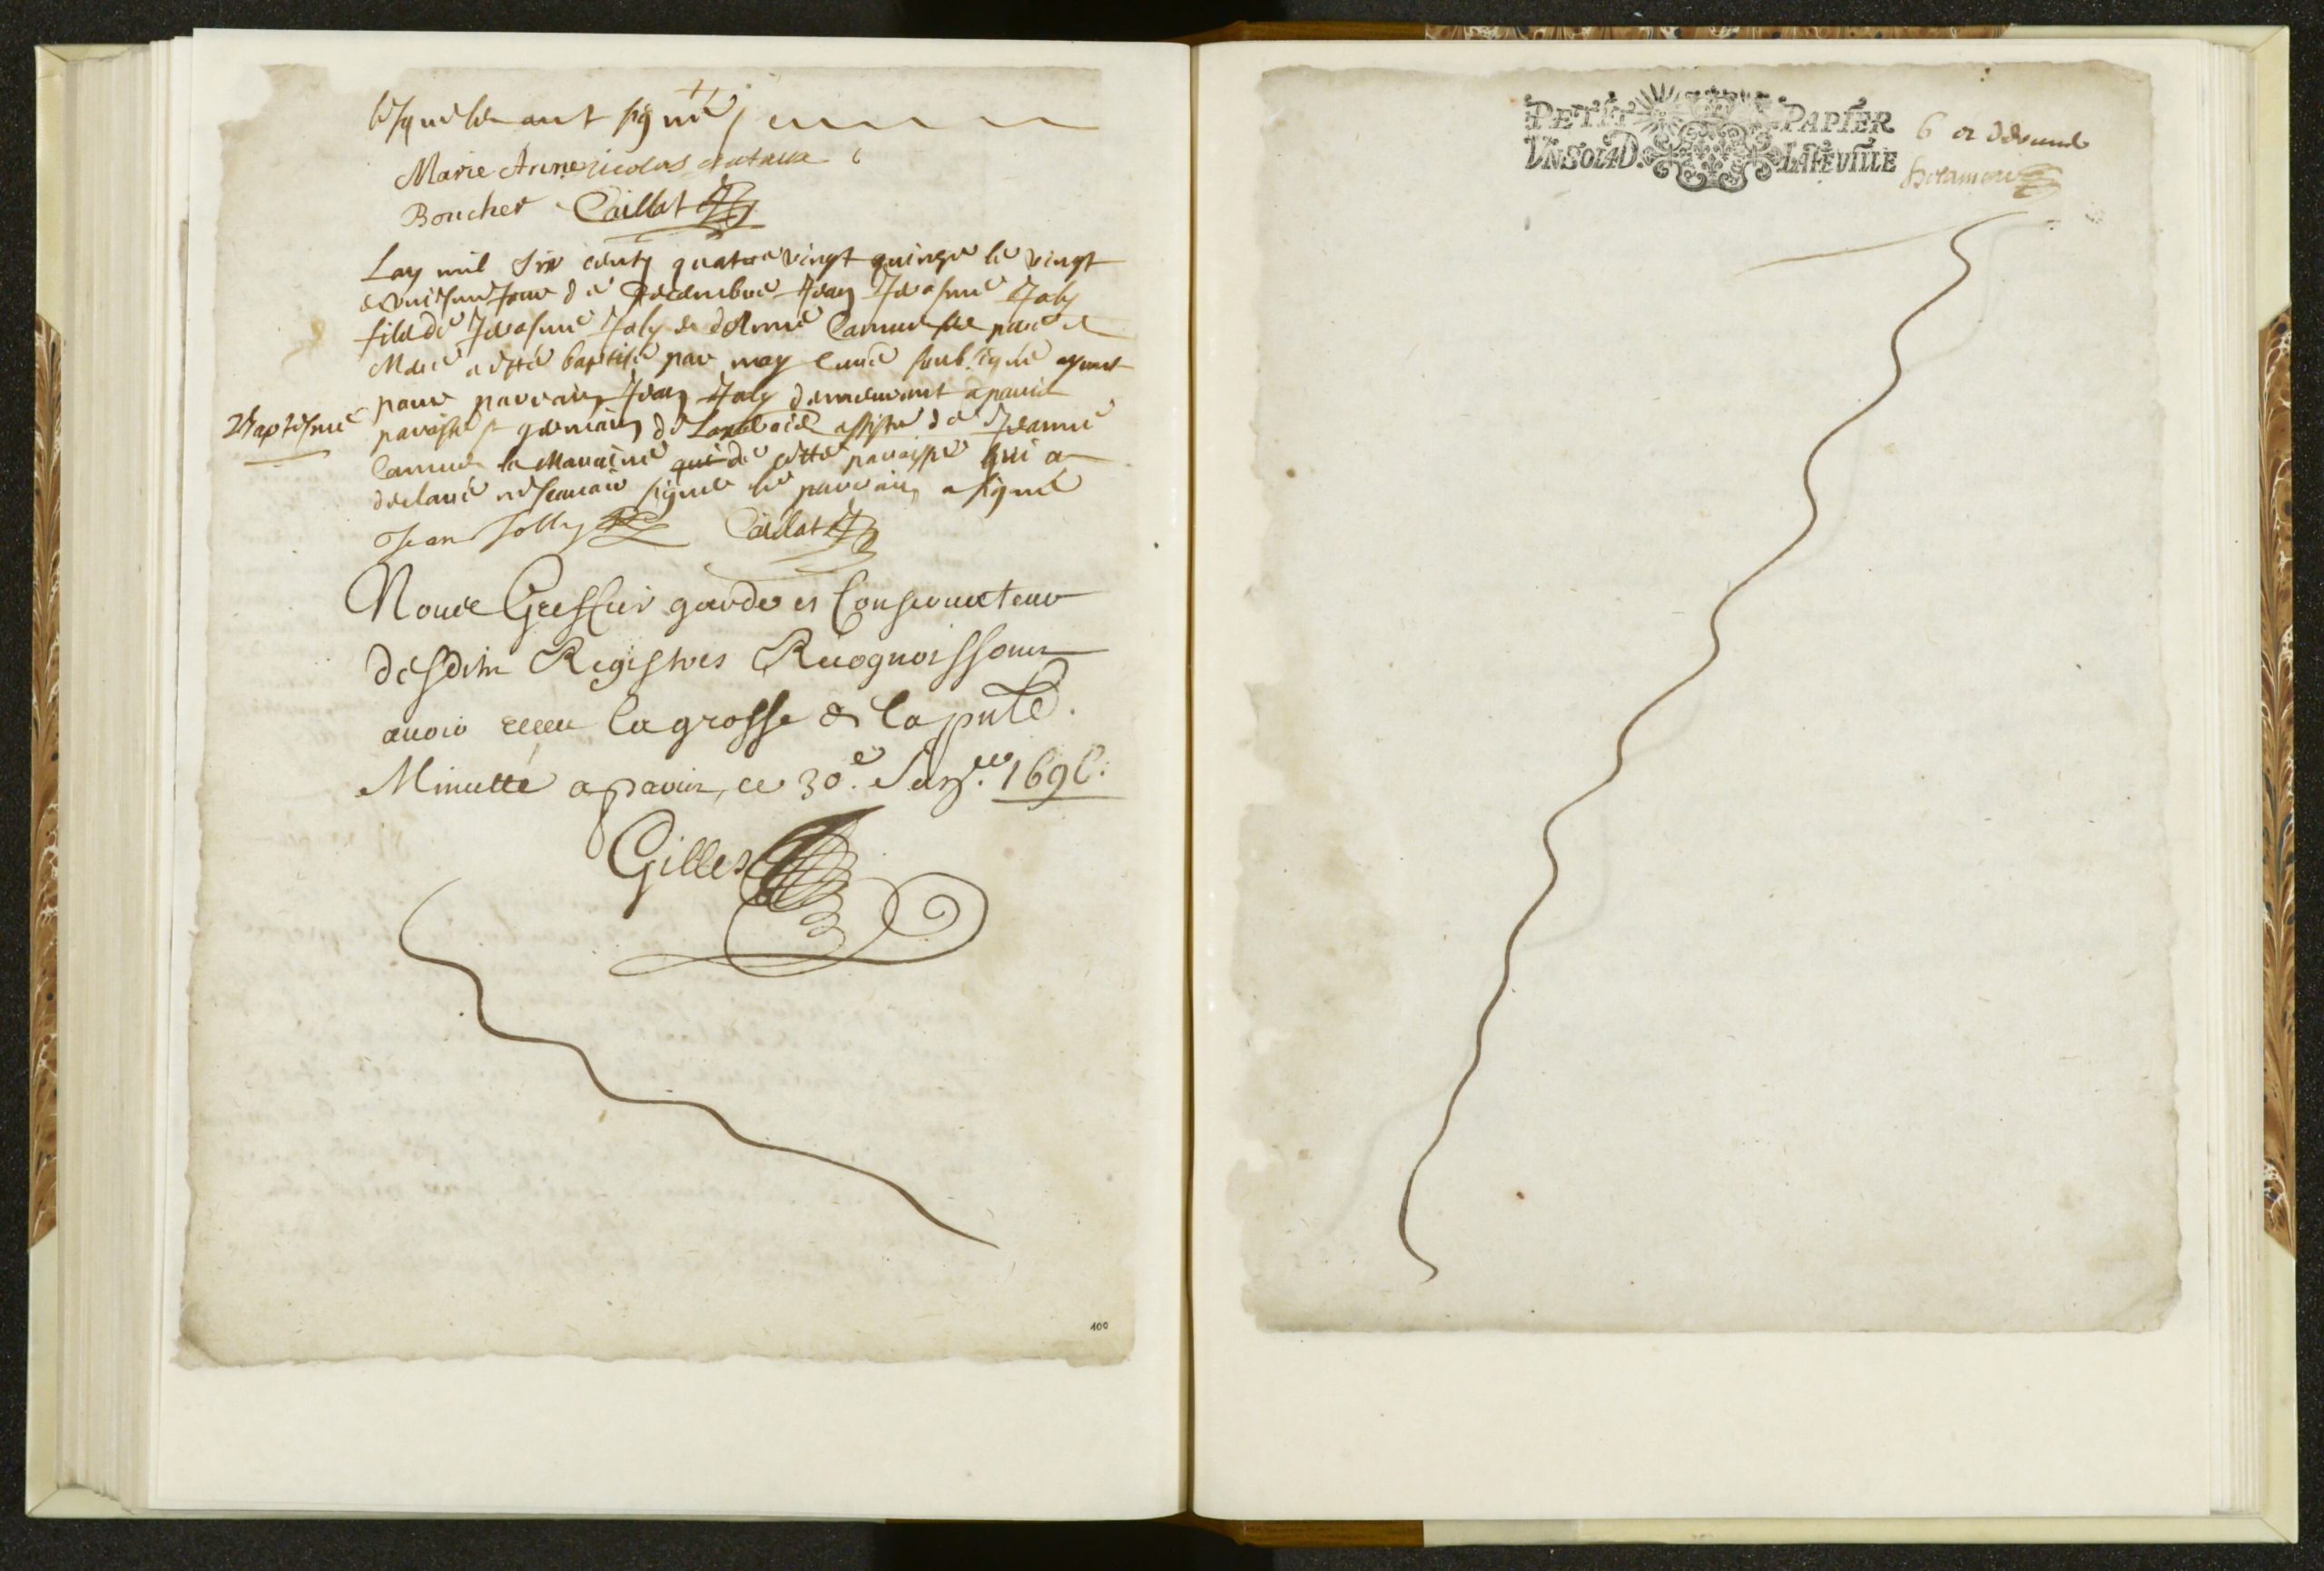 lesquels ont signé
Marie Anne nicolas
Boucher Caillat
Lan mil six cents quatre vingt quinze le vingt
jour de Decembre Jean Jerosme Joly
fils de Jerosme Joly et de Anne Camus ses pere et
Mere a esté baptisé par moy Curé soub.signé ayant
pour parrain Jean Joly demeurant a paris
Baptesme
paroisse st germain de assisté de Jeanne
Camus la Maraine qui de cette paroisse qui a
declaré ne scavoir signer le parrain a signé
Jean Jolly Caillat
Nous Greffier garde et Conservateur
desdits Registres Recognoissons
avoir receu la grosse et la pnte.
Minutte a paris, ce 30.e Janv.er 1696.
Gilles
100
PETIT PAPIER
VN SOL 4 D. LA FEVILLE
6 et